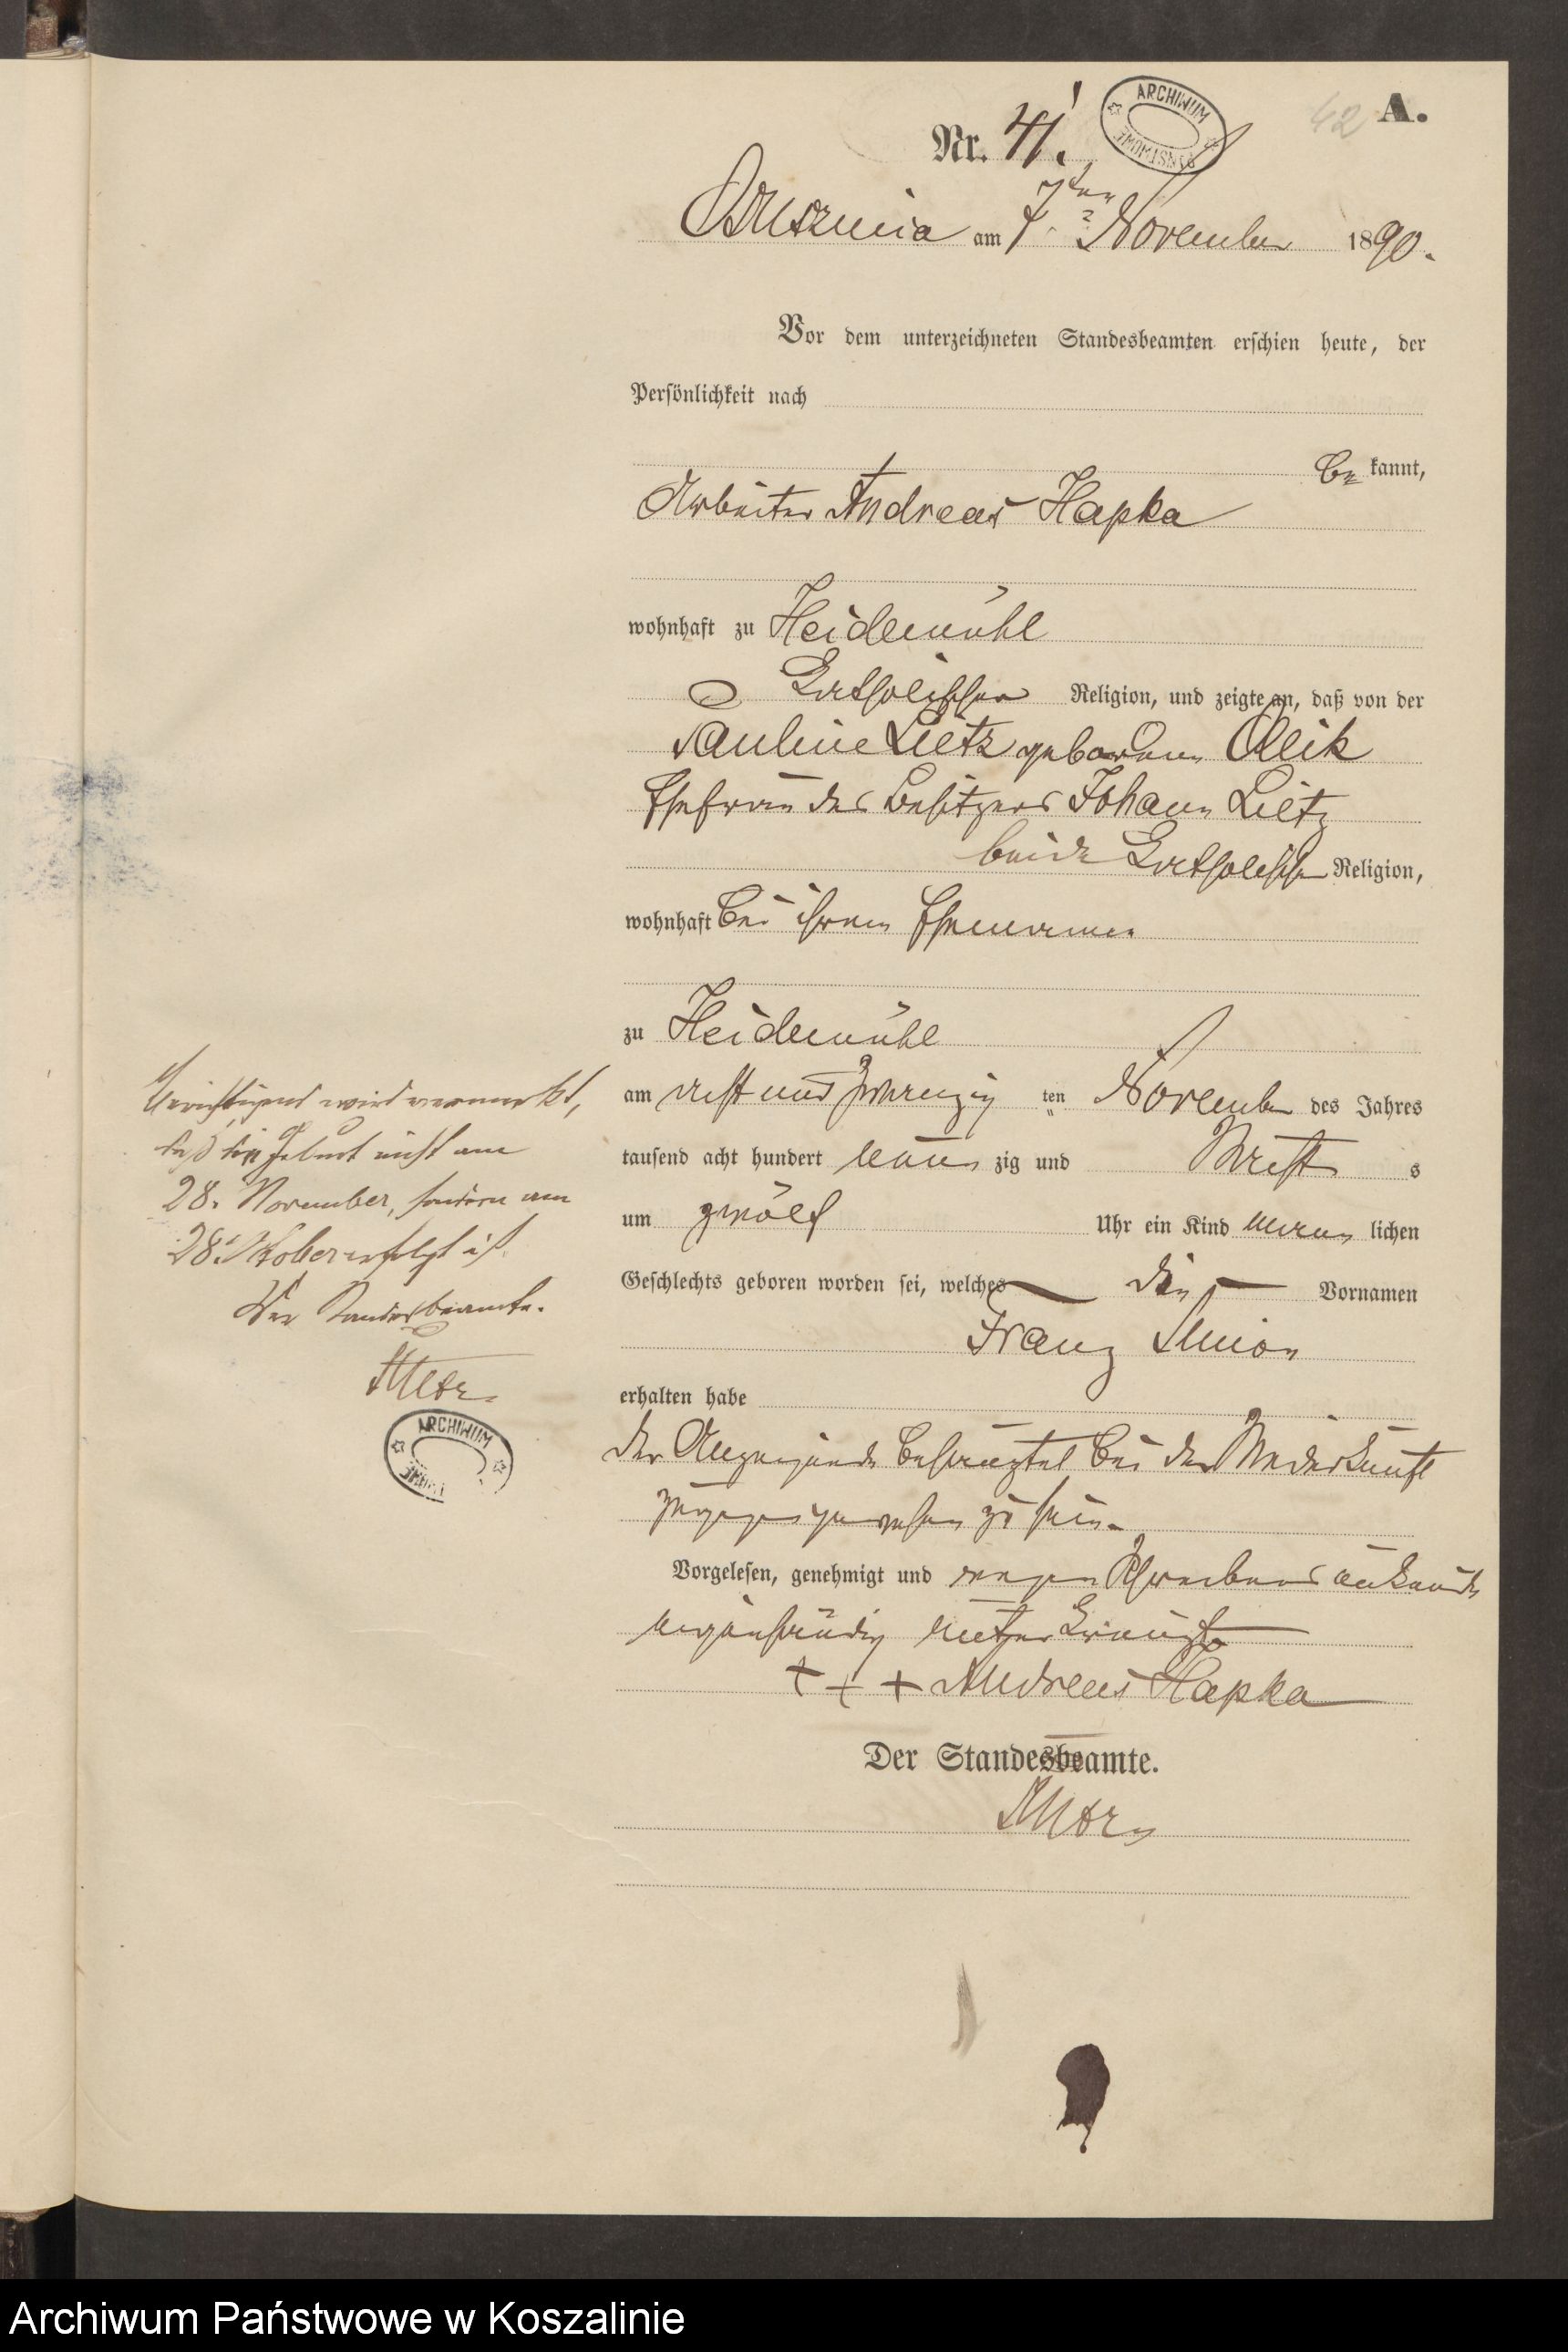 ARCHIWUM PAŃSTWOWE
42
A.
Nr. 41.
am 7ten November 1890.
Vor dem unterzeichneten Standesbeamten erschien heute, der
Persönlichkeit nach
be kannt,
Arbeiter Andreas Hapka
wohnhaft zu Heidemühl
katholischer Religion, und zeigte an, daß von der
Pauline Lietz geborene
Ehefrau des Besitzers Johann Lietz
beide katholischer Religion,
wohnhaft bei ihrem Ehemanne
zu Heidemühl
am acht und zwanzig ten November des Jahres
tausend acht hundert neun zig und s
um zwölf Uhr ein Kind männ lichen
Geschlechts geboren worden sei, welches die Vornamen
Franz Simon
erhalten habe
der Anzeigende bei der Niederkunft
zugegen gewesen zu sein.
Vorgelesen, genehmigt und wegen Schreibens unkunde
+ + + Andreas Hapka
Der Standesbeamte.
Berichtigend wird vermerkt,
daß die Geburt nicht am
28. November, sondern am
28. Oktober erfolgt ist.
Der Standesbeamte.
ARCHIWUM
Archiwum Państwowe w Koszalinie